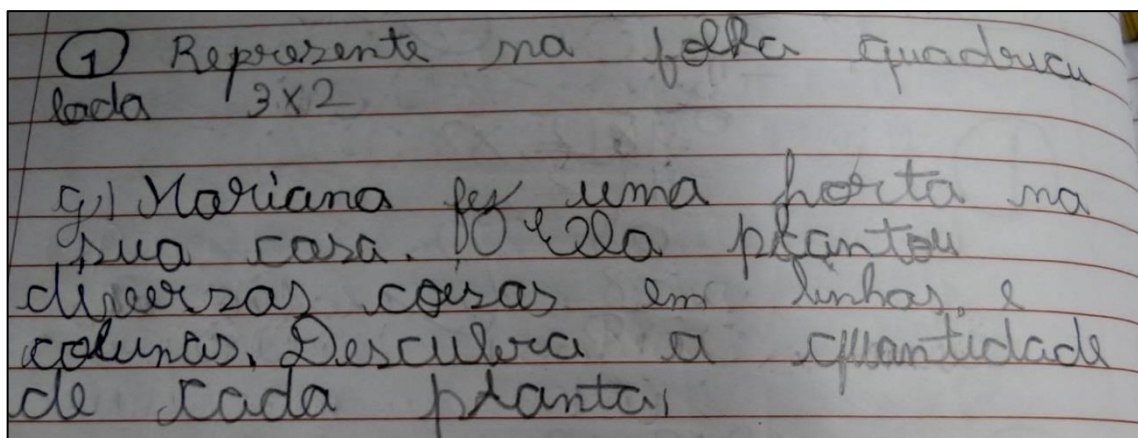 1 Represente na folha quadricu
lada 3x2
g) Mariana fez uma horta na
sua casa. Ela plantou
diverzas coisas em linhas e
colunas. Descubra a quantidade
de cada planta,